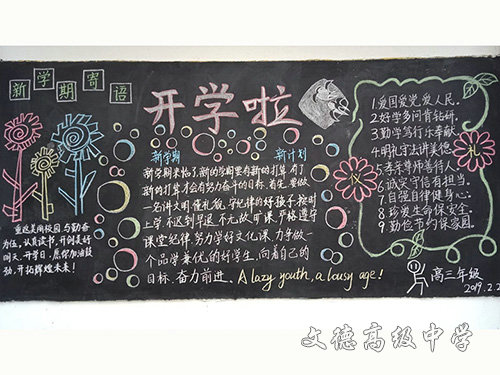 新学期寄语
重返美丽校园,与勤奋
为伍,认真读书,开创美好
明天,开学日,愿你加油鼓
劲,开拓辉煌未来!
开学啦
新学期 新计划
新学期来临了,新的学期要有新的打算,有了
新的打算才会有努力奋斗的目标。首先,要做
一名讲文明,懂礼貌,守纪律的好孩子,按时
上学,不迟到早退,不无故旷课,严格遵守
课堂纪律,努力学好文化课,力争做一
个品学兼优的好学生,向着自己的
目标,奋力前进。A lazy youth, a lousy age!
礼仪
1.爱国爱党爱人民。
2.好学多问肯钻研。
3.勤学笃行乐奉献。
4.明礼守法讲美德。
5.孝亲尊师善待人。
6.诚实守信有担当。
7.自强自律健身心。
8.珍爱生命保安全。
9.勤俭节约保家园。
高三年级
2019.2.2
文德高级中学